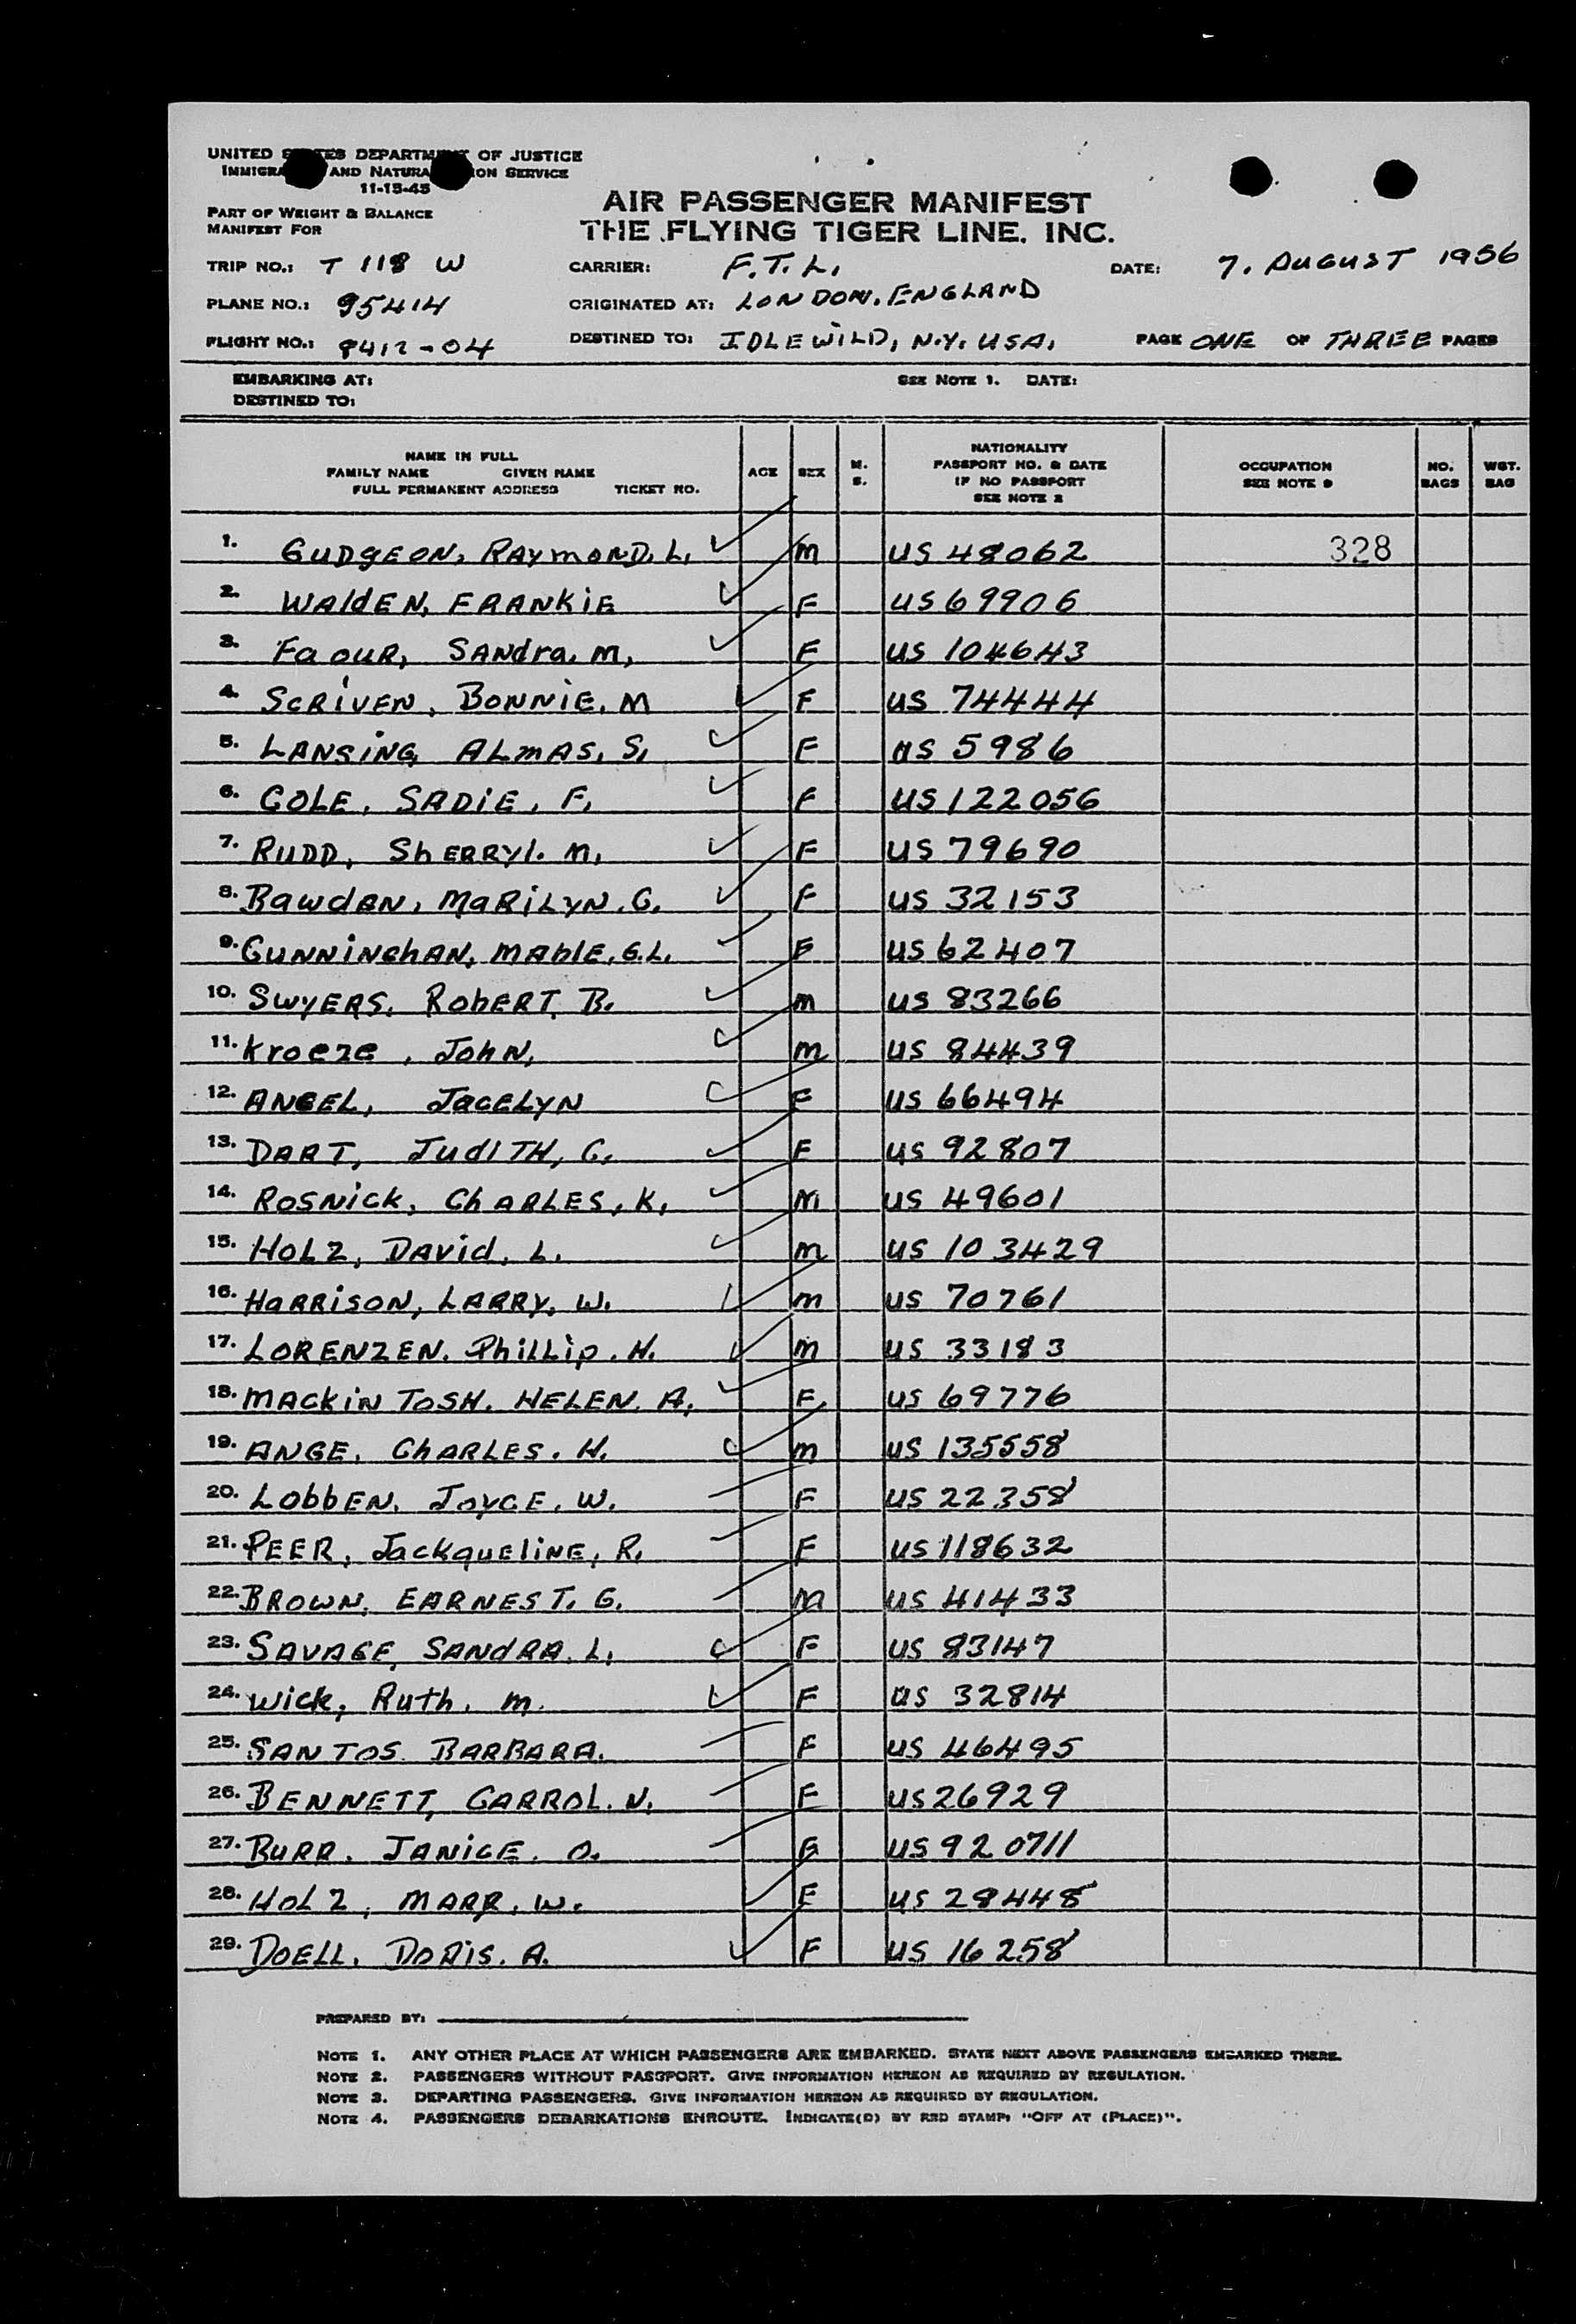 UNITED STATES DEPARTMENT OF JUSTICE
IMMIGRATION AND NATURALIZATION SERVICE
11-15-45
PART OF WEIGHT & BALANCE
MANIFEST FOR
AIR PASSENGER MANIFEST
THE FLYING TIGER LINE, INC.
TRIP NO.: T 118 W CARRIER: F.T.L. DATE: 7. AUGUST 1956
PLANE NO.: 95414 ORIGINATED AT: LONDON. ENGLAND
FLIGHT NO.: 8412-04 DESTINED TO: IDLEWILD, N.Y. USA. PAGE ONE OF THREE PAGES
EMBARKING AT: SEE NOTE 1. DATE:
DESTINED TO:
NAME IN FULL
FAMILY NAME GIVEN NAME
FULL PERMANENT ADDRESS TICKET NO.
AGE
SEX
M.
S.
NATIONALITY
PASSPORT NO. & DATE
IF NO PASSPORT
SEE NOTE 2
OCCUPATION
SEE NOTE 3
NO.
BAGS
WGT.
BAG
1. GUDGEON, RAYMOND. L. M US 48062 328
2. WALDEN, FRANKIE F US 69906
3. FaouR, SANdra. M, F US 104643
4. SCRIVEN, BONNIE. M F US 74444
5. LANSING, ALMAS, S, F US 5986
6. COLE, SADIE, F, F US 122056
7. RUDD, ShERRYl. M, F US 79690
8. BawdEN, MaRILYN. C. F US 32153
9. CUNNINGhAN, MAblE, G.L. F US 62407
10. SWYERS, RobERT, B. M US 83266
11. kroeze, JohN, M US 84439
12. ANGEL, JaCELYN F US 66494
13. DART, JudITH, C, F US 92807
14. ROSNick, ChARLES, K, M US 49601
15. HOLZ, DAVid, L. M US 103429
16. HaRRISON, LARRY, W. M US 70761
17. LORENZEN. PhiLLip. H. M US 33183
18. MACkiN TOSH. HELEN. A, F US 69776
19. ANGE, ChARLES. H. M US 135558
20. LObbEN, JOYCE, W. F US 22358
21. PEER, JackqueLINE, R, F US 118632
22. BROWN, EARNEST. G. M US 41433
23. SAVAGE, SANdRA. L, F US 83147
24. Wick, Ruth. M. F US 32814
25. SANTOS. BARBARA. F US 46495
26. BENNETT, CARROL. N, F US 26929
27. BURR. JANICE. O. F US 920711
28. HOLZ, MARR, W. F US 28448
29. DOELL, DORIS. A. F US 16258
PREPARED BY:
NOTE 1. ANY OTHER PLACE AT WHICH PASSENGERS ARE EMBARKED. STATE NEXT ABOVE PASSENGERS EMBARKED THERE.
NOTE 2. PASSENGERS WITHOUT PASSPORT. GIVE INFORMATION HEREON AS REQUIRED BY REGULATION.
NOTE 3. DEPARTING PASSENGERS. GIVE INFORMATION HEREON AS REQUIRED BY REGULATION.
NOTE 4. PASSENGERS DEBARKATIONS ENROUTE. INDICATE(D) BY RED STAMP: "OFF AT (PLACE)".